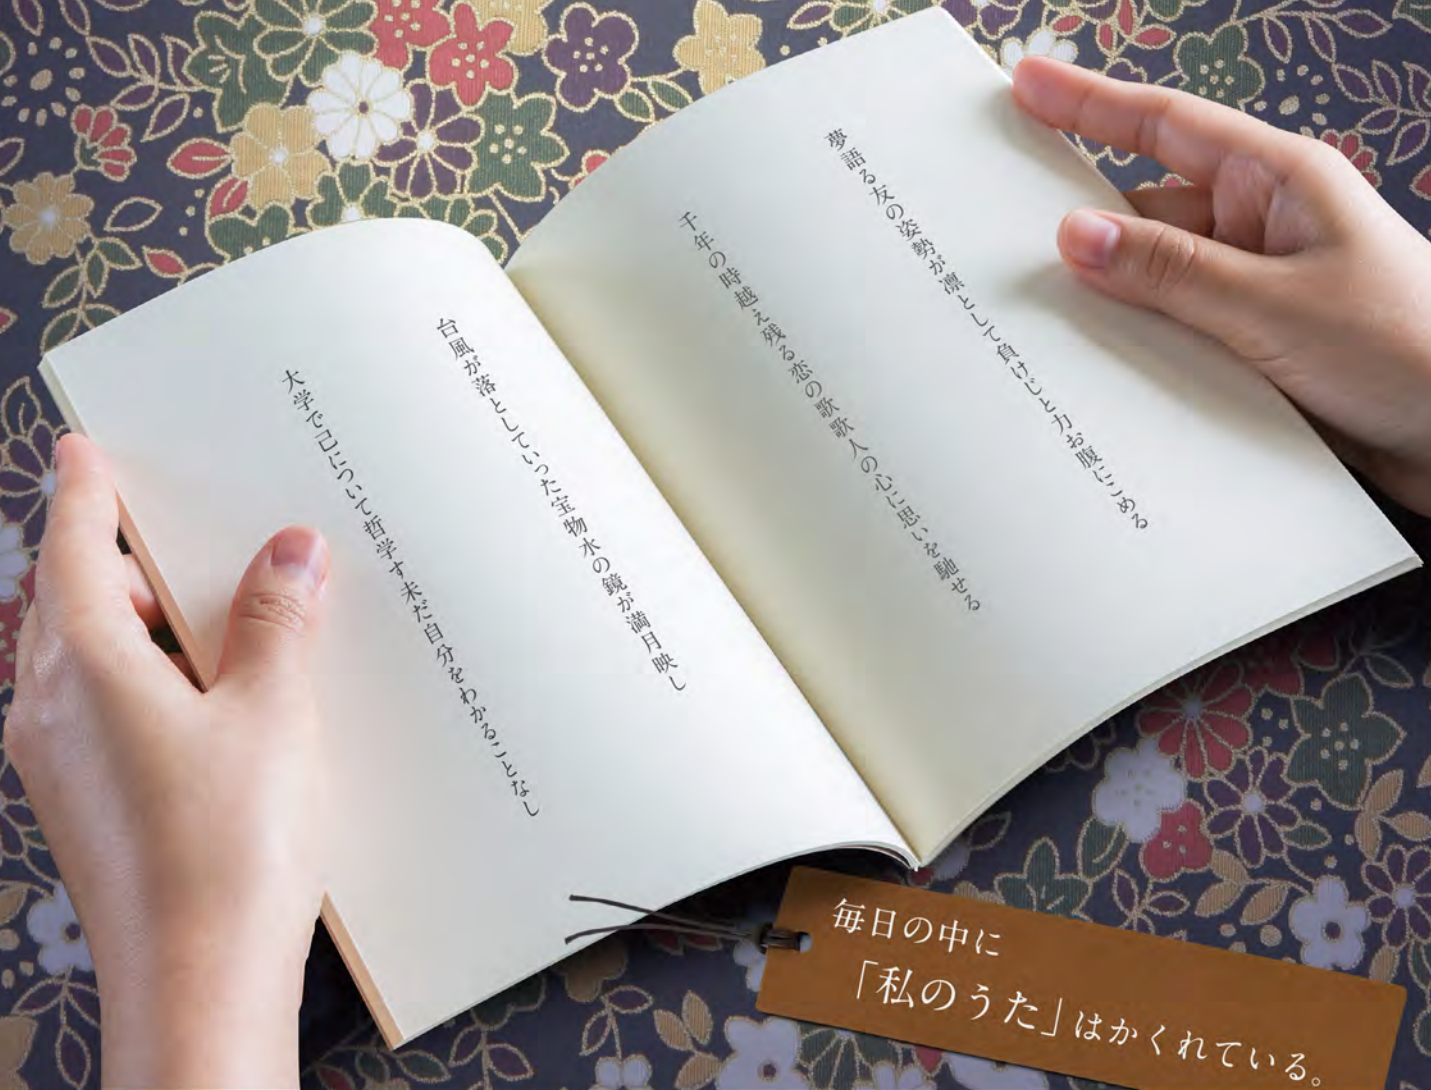 夢語る友の姿勢が凛として負けじと力お腹にこめる
千年の時越え残る恋の歌歌人の心に思いを馳せる
台風が落としていった宝物水の鏡が満月映し
大学で己について哲学す未だ自分をわかることなし
毎日の中に
「私のうた」はかくれている。